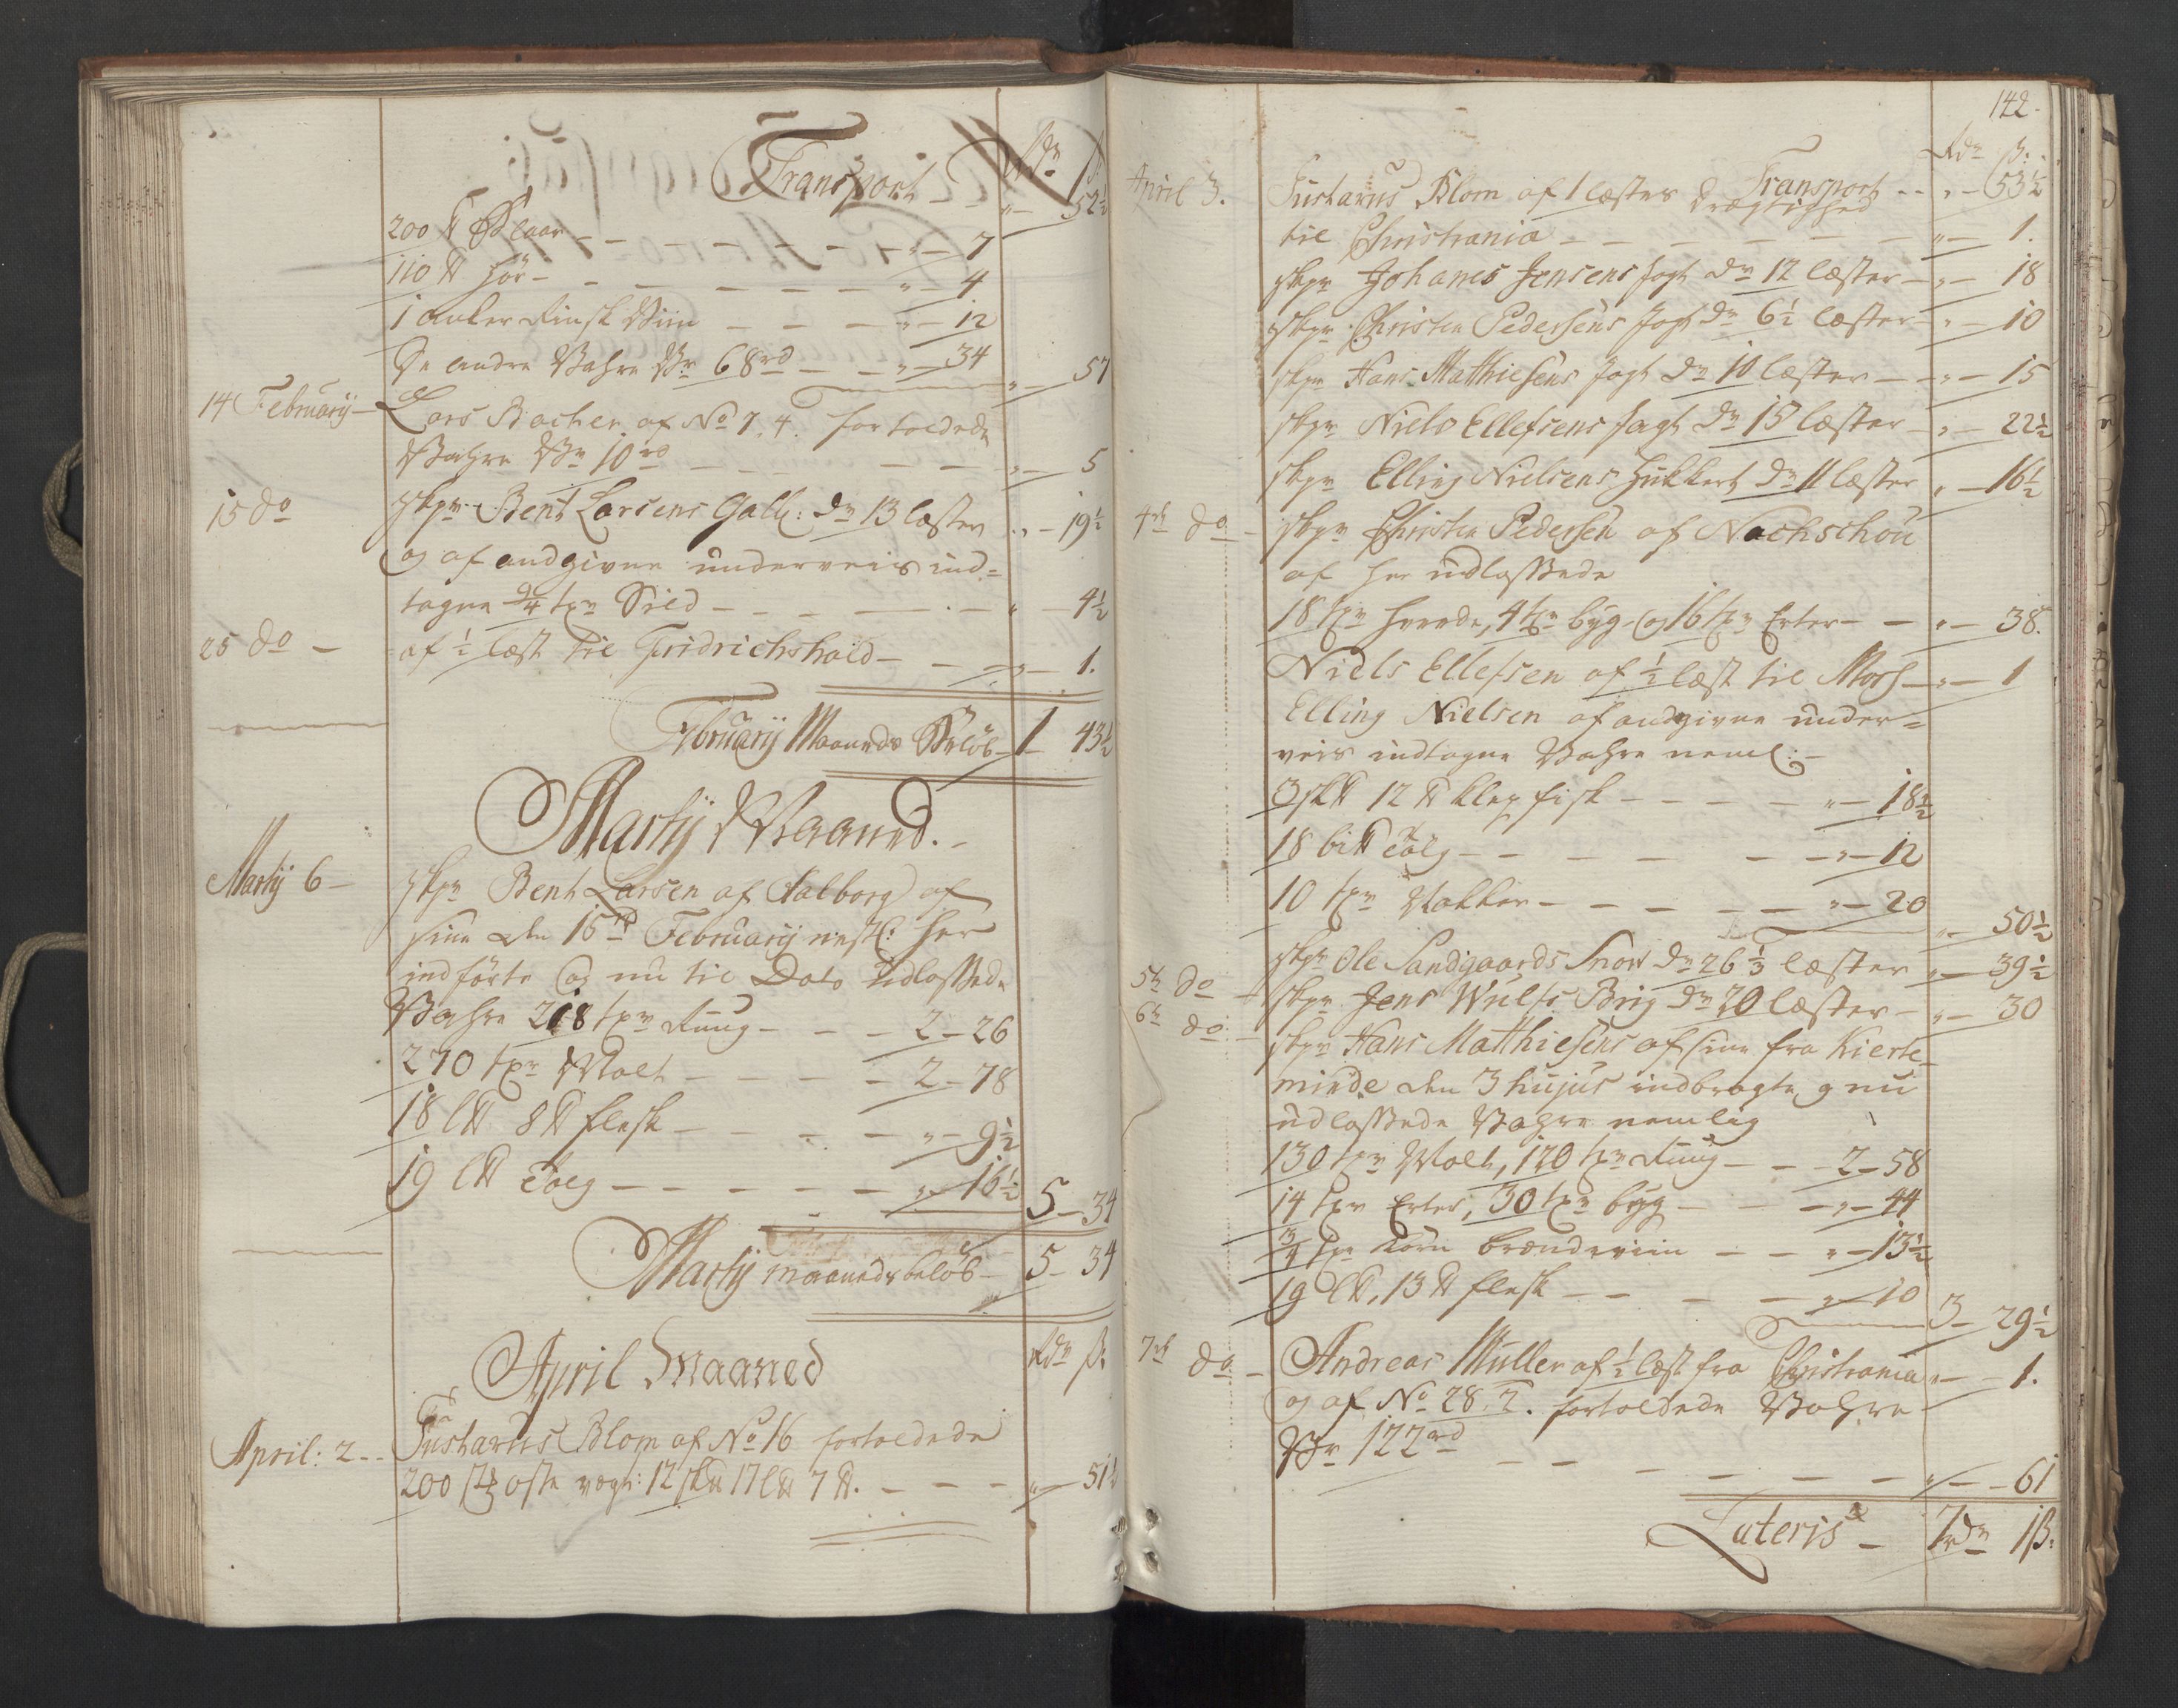 Transport - - Rdr ß:
„ - 52½
200 ℔ Blaar - - - - - „ - 7
110 ℔ hør - - - - - - „ - 4
1 Anker Rinsk Viin - - - „ - 12
De andre Vahre Vr 68 rd - - „ - 34
„ - 57
14 Februarij - Lars Bacher af No 7. 4. fortoldede
Vahre Vr 10 rd - - - - „ - 5
15 do Skpr Bent Larsens Gall: dr 13 læster „ - 19½
og af andgivne underveis ind=
tagne 9/4 tpr Sild - - - - „ - 4½
25 do - af ½ læst til Fridrichshald - - - „ - 1.
Februarij Maaneds Beløb - 1 43½
Martij Maaned.
Martij 6 - Skpr Bent Larsen af Aalborg af
sine den 15de Februarij nestl: her
indførte og nu til Dato udlossede
Vahre 218 tpr Ruug - - - 2 - 26
270 tpr Malt - - - - 2 - 78
18 l℔ 8 ℔ flesk - - - - „ - 9½
19 l℔ Talg - - - - - „ - 16½ 5 - 34
Martij maaneds beløb - 5 - 34
April Maaned Rdr ß:
April: 2 - - Gustavus Blom af No 16 fortoldede
200 stk oste vegt: 12 sk℔ 17 l℔ 7 ℔. - - - „ - 51½
142.
Rdr ß:
Transport - - „ - 53½
April 3. Gustavus Blom af 1 læsters drægtighed
til Christiania - - - - - - „ - 1.
skpr Johanes Jensens Jagt dr 12 læster - „ - 18
skpr Christen Pedersens Jagt dr 6½ læster - „ - 10
skpr Hans Matthiesens Jagt dr 10 læster - - „ - 15
skpr Niels Ellefsens Jagt dr 15 læster - „ - 22½
skpr Elling Nielsens Hukkert dr 11 læster „ - 16½
4de do - skpr Christen Pedersen af Nachschou
af her udlossede
18 tpr hvede, 4 tpr byg og 16 tpr Erter - - „ - 38.
Niels Ellefsen af ½ læst til Moss - „ - 1
Elling Nielsen af andgivne under=
veis indtagne Vahre neml: -
3 sk℔ 12 ℔ klepfisk - - - - „ - 18½
18 bi℔ Talg - - - - - - „ - 12
10 tpr Nakker - - - - - „ - 20
„ - 50½
5te do - skpr Ole Sandgaards Snow dr 26⅓ læster „ - 39½
6te do - skpr Jens Wulfs Brig dr 20 læster - „ - 30
skpr Hans Matthiesens af sine fra Kierte-
minde den 3 hujus indbragte g nu
udlossede Vahre nemlig
130 tpr Malt, 120 tpr Ruug - - - 2 - 58
14 tpr Erter, 30 tpr byg - - - „ - 44
¾ tpr Korn brændeviin - - „ - 13½
19 l℔, 13 ℔ flesk - - - - „ - 10
3 - 29½
7de do - Andreas Muller af ½ læst fra Christiania „ - - 1.
og af No 28. 2. fortoldede Vahre
Vr 122 rd - - - - - - - „ - - 61
Lateris - 7 rdr 1 ß.